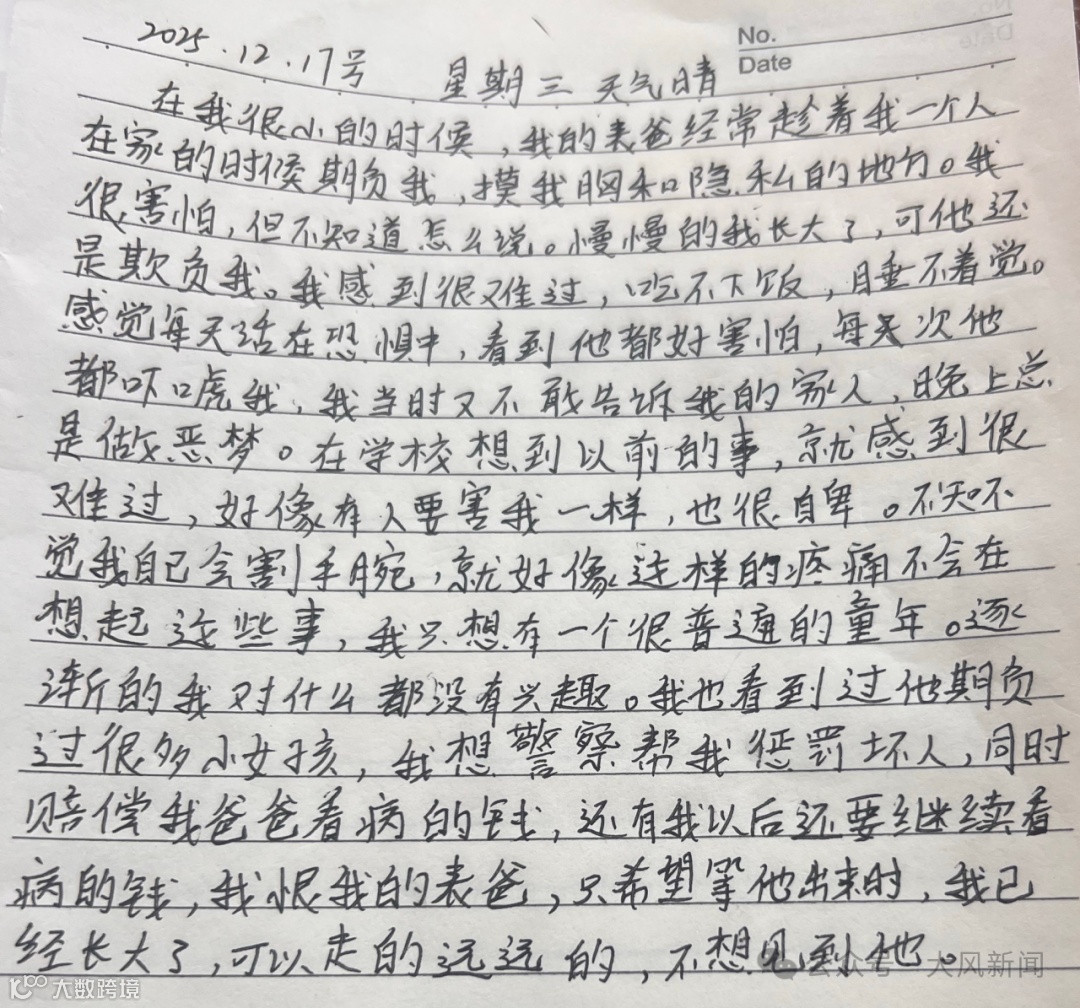 No.
Date
2025.12.17号 星期三 天气晴
在我很小的时候,我的表爸经常趁着我一个人
在家的时候期负我,摸我胸和隐私的地方。我
很害怕,但不知道怎么说。慢慢的我长大了,可他还
是欺负我。我感到很难过,吃不下饭,睡不着觉。
感觉每天活在恐惧中,看到他都好害怕,每次他
都吓唬我,我当时又不敢告诉我的家人,晚上总
是做恶梦。在学校想到以前的事,就感到很
难过,好像有人要害我一样,也很自卑。不知不
觉我自己会割手腕,就好像这样的疼痛不会在
想起这些事,我只想有一个很普通的童年。逐
渐的我对什么都没有兴趣。我也看到过他期负
过很多小女孩,我想警察帮我惩罚坏人,同时
赔偿我爸爸看病的钱,还有我以后还要继续看
病的钱,我恨我的表爸,只希望等他出来时,我已
经长大了,可以走的远远的,不想见到他。
公众号 大风新闻
大数跨境